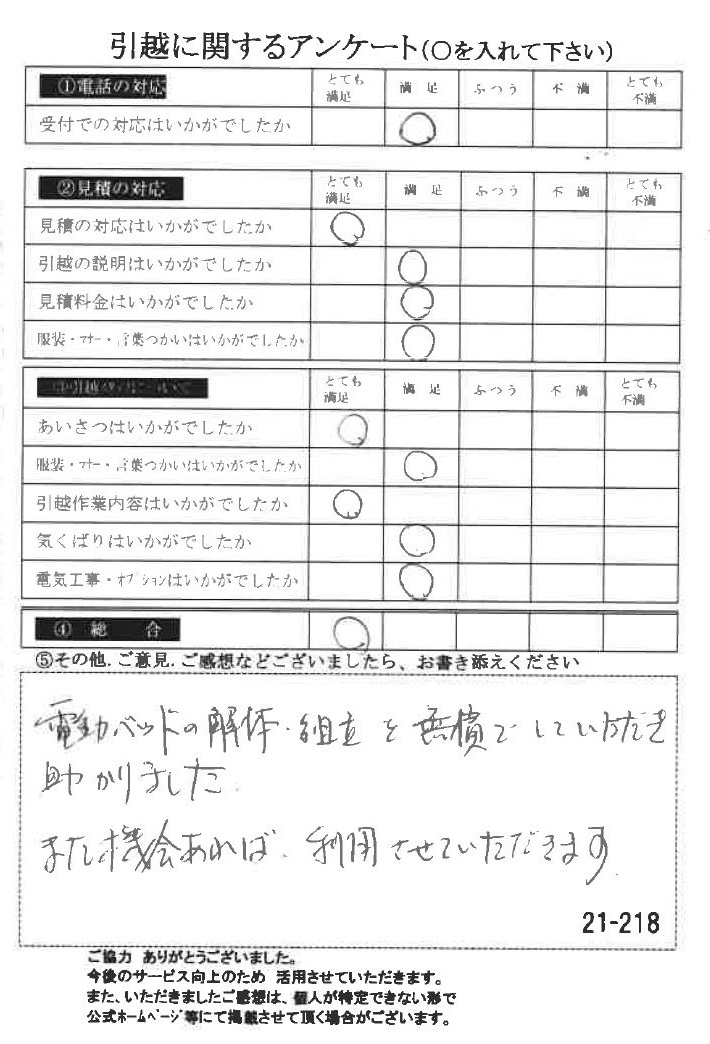 引越に関するアンケート(〇を入れて下さい)
①電話の対応 とても満足 満足 ふつう 不満 とても不満
受付での対応はいかがでしたか
②見積の対応 とても満足 満足 ふつう 不満 とても不満
見積の対応はいかがでしたか
引越の説明はいかがでしたか
見積料金はいかがでしたか
服装・マナー・言葉つかいはいかがでしたか
とても満足 満足 ふつう 不満 とても不満
あいさつはいかがでしたか
服装・マナー・言葉つかいはいかがでしたか
引越作業内容はいかがでしたか
気くばりはいかがでしたか
電気工事・オプションはいかがでしたか
④ 総 合
⑤その他.ご意見.ご感想などございましたら、お書き添えください
電動ベッドの解体・組立を無償でしていただき
助かりました。
また機会あれば、利用させていただきます。
21-218
ご協力 ありがとうございました。
今後のサービス向上のため 活用させていただきます。
また、いただきましたご感想は、個人が特定できない形で
公式ホームページ等にて掲載させて頂く場合がございます。